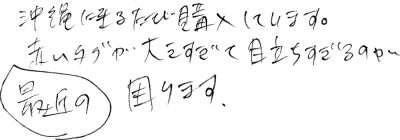 沖縄に来るたび購入しています。
赤いタグが大きすぎて目立ちすぎるのが
最近の 困ります.